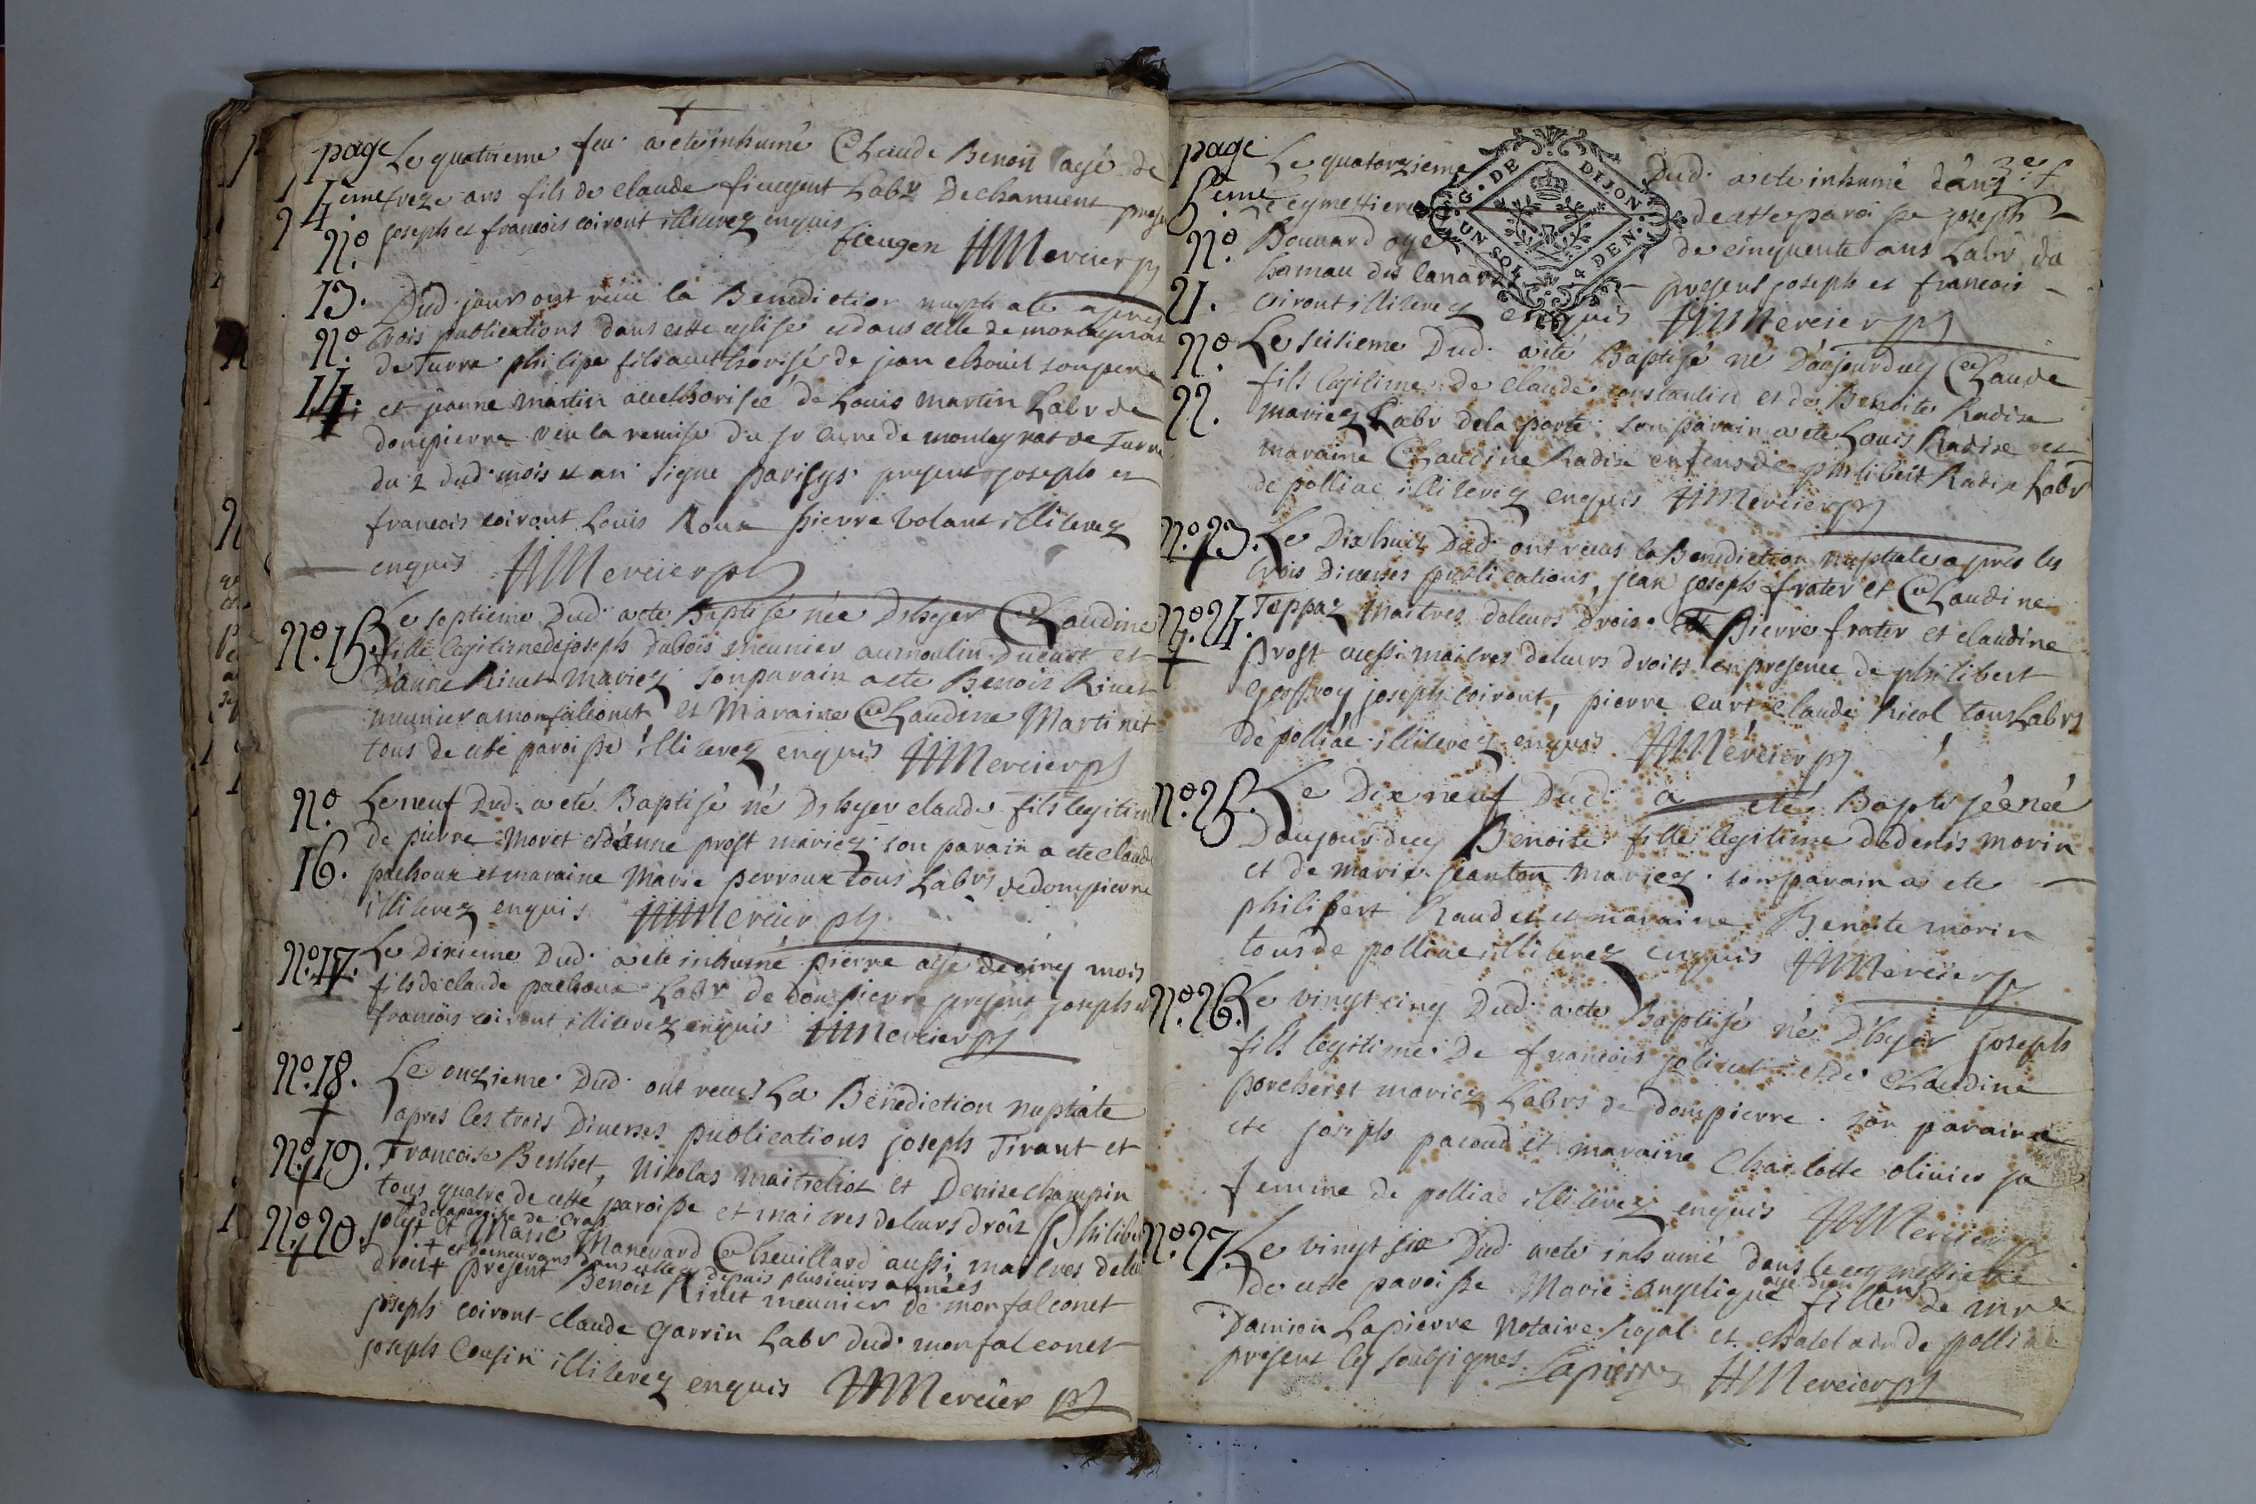 page
4eme
No
13.
Le quatrieme feu. a ete inhumé Claude Benoit agé de
treze ans fils de claude fieugent Labr De channent present
joseph et francois coiront illiterez enquis
fieugen HMercier
No
14.
Dud. jour ont reçu la Benediction nuptiale apres
trois publications dans cette eglise et dans celle de montagnat
de Turre philipe fils authorisé de jean chouit son pere
et jeanne martin aucthorisée de Louis martin Labr de
dompierre veu la remise du sr cure de montagnat de Turre
du 2 dud. mois et an signe parisys. present joseph et
francois coiront Louis Roux pierre Volant illiterez
enquis HMercier
No. 15.
Le septieme Dud. a ete Baptisé née D'hyer Claudine
fille legitime de joseph Dubois meunier au moulin Ducurt et
D'anne Rivet mariez son parain a ete Benoit Rivet
meunier a monfalconet et Maraine Claudine Martinet
tous de cette paroisse illiterez enquis HMercier
No
16.
Le neuf Dud. a eté Baptisé né D'hyer claude fils legitime
de pierre Moret et d'anne prost mariez. son parain a ete claude
pachoux et maraine Marie perroux tous Labrs de dompierre
illiterez enquis HMercier
No. 17.
Le Dixieme Dud. a ete inhumé pierre agé de cinq mois
fils de claude pachoux Labr de dompierre present joseph et
francois coiront illiterez enquis HMercier
No. 18.
Le onzieme Dud. ont reçus La Benediction nuptiale
apres les trois Diverses publications joseph Tirant et
No. 19.
Francoise Berthet, Nicolas maitrehot et Denise champin
tous quatre de cette paroisse et maitres de leurs droits Philibert
de la paroisse de Cras
No. 20.
joly + et Marie Manevard Chevillard aussi maitres de leurs
+ et demeurans dans celle cy depuis plusieurs années
droit + present Benoit Rivet meunier de monfalconet
joseph coiront claude garrin Labr dud. monfalconet
joseph Cousin illiterez enquis HMercier
page
5eme
3e f
G. DE DIJON
UN SOL 4 DEN.
No
21.
Le quatorzieme Dud. a ete inhumé dans
Le cymetiere de cette paroisse joseph
Bonnard agé de cinquente ans Labr du
hamau des lanars present joseph et francois
coiront illiterez enquis HMercier
No
22.
Le seisieme Dud. a eté Baptisé né D'aujourduy Claude
fils legitime de claude constantin et de Benoite Radix
mariez Labr dela porte. son parain a ete Louis Radix et
maraine Claudine Radix enfens de philibert Radix Labr
de polliac illiterez enquis HMercier
No. 23.
Le Dixhuit Dud. ont reçus la Benediction nuptiale apres les
trois Diverses publications, jean joseph frater et Claudine
No. 24.
Teppaz Maitres de leurs Droits. Et Pierre frater et claudine
Prost aussi maitres de leurs droits en presence de philibert
Geoffroy joseph coiront, pierre curt claude Nicol tous Labrs
de polliac illiterez enquis HMercier
No. 25.
Le Dix neuf Dud. a eté Baptisée née
Daujourduy Benoite fille legitime de denis morin
et de marie jeanton mariez. son parain a ete
philibert Raudet et maraine Benoite morin
tous de polliac illiterez enquis HMercier
No. 26.
Le vingt cinq Dud. a ete Baptisé né D'hyer joseph
fils legitime De francois jolivet et de Claudine
porcheret mariez Labrs de dompierre. son parain a
ete joseph pacoud et maraine Charlotte olivier sa
femme de polliac illiterez enquis HMercier
No. 27.
Le vingt six Dud. a ete inhumé dans le cymettiere
de cette paroisse Marie angelique agé d'un an fille de mre
Damien Lapierre Notaire Rojal et chatelain de polliac
present les soussignes. Lapierre HMercier